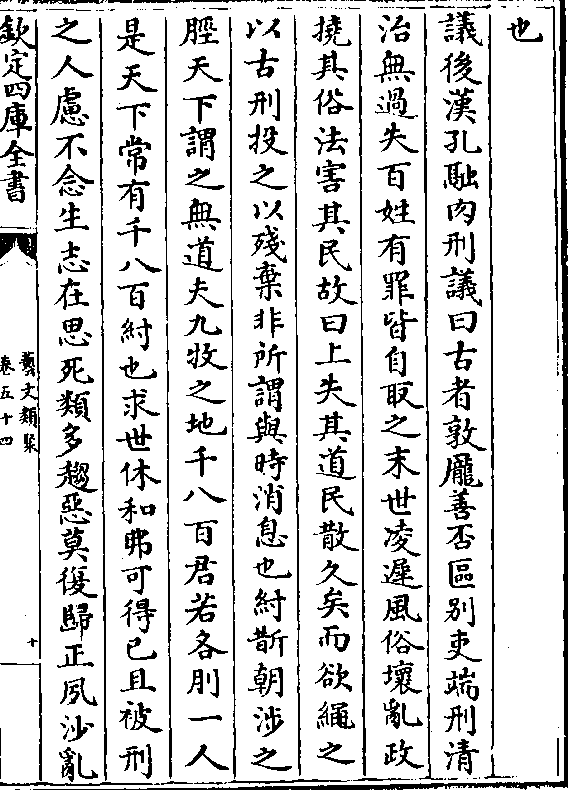 也
議後漢孔融肉刑議曰古者敦龎善否區别吏端刑清
治無過失百姓有罪皆自取之末世凌遲風俗壞亂政
撓其俗法害其民故曰上失其道民散久矣而欲繩之
以古刑投之以殘棄非所謂與時消息也紂斮朝涉之
脛天下謂之無道夫九牧之地千八百君若各刖一人
是天下常有千八百紂也求世休和弗可得已且被刑
之人慮不念生志在思死類多趨惡莫復歸正夙沙亂
欽定四庫全書
藝文類聚
卷五十四
十